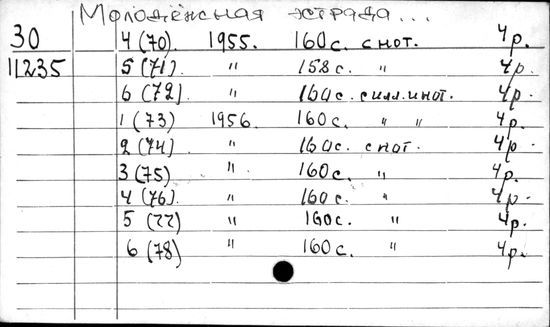 Молодёжная эстрада...
30 4 (70). 1955. 160с. с нот. 4р.
11235 5 (71) " 158с. " 4р.
6 (72). " 160с. с илл. и нот. 4р.
1 (73) 1956. 160с. " " 4р.
2 (74) " 160с. с нот. 4р.
3 (75) " 160с. " 4р.
4 (76). " 160с. " 4р.
5 (77) " 160с. " 4р.
6 (78) " 160с. " 4р.